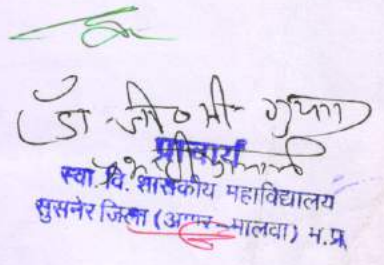 डॉ जी० सी गुप्ता
प्राचार्य
स्वा. वि. शासकीय महाविद्यालय
सुसनेर जिला (आगर-मालवा) म.प्र.